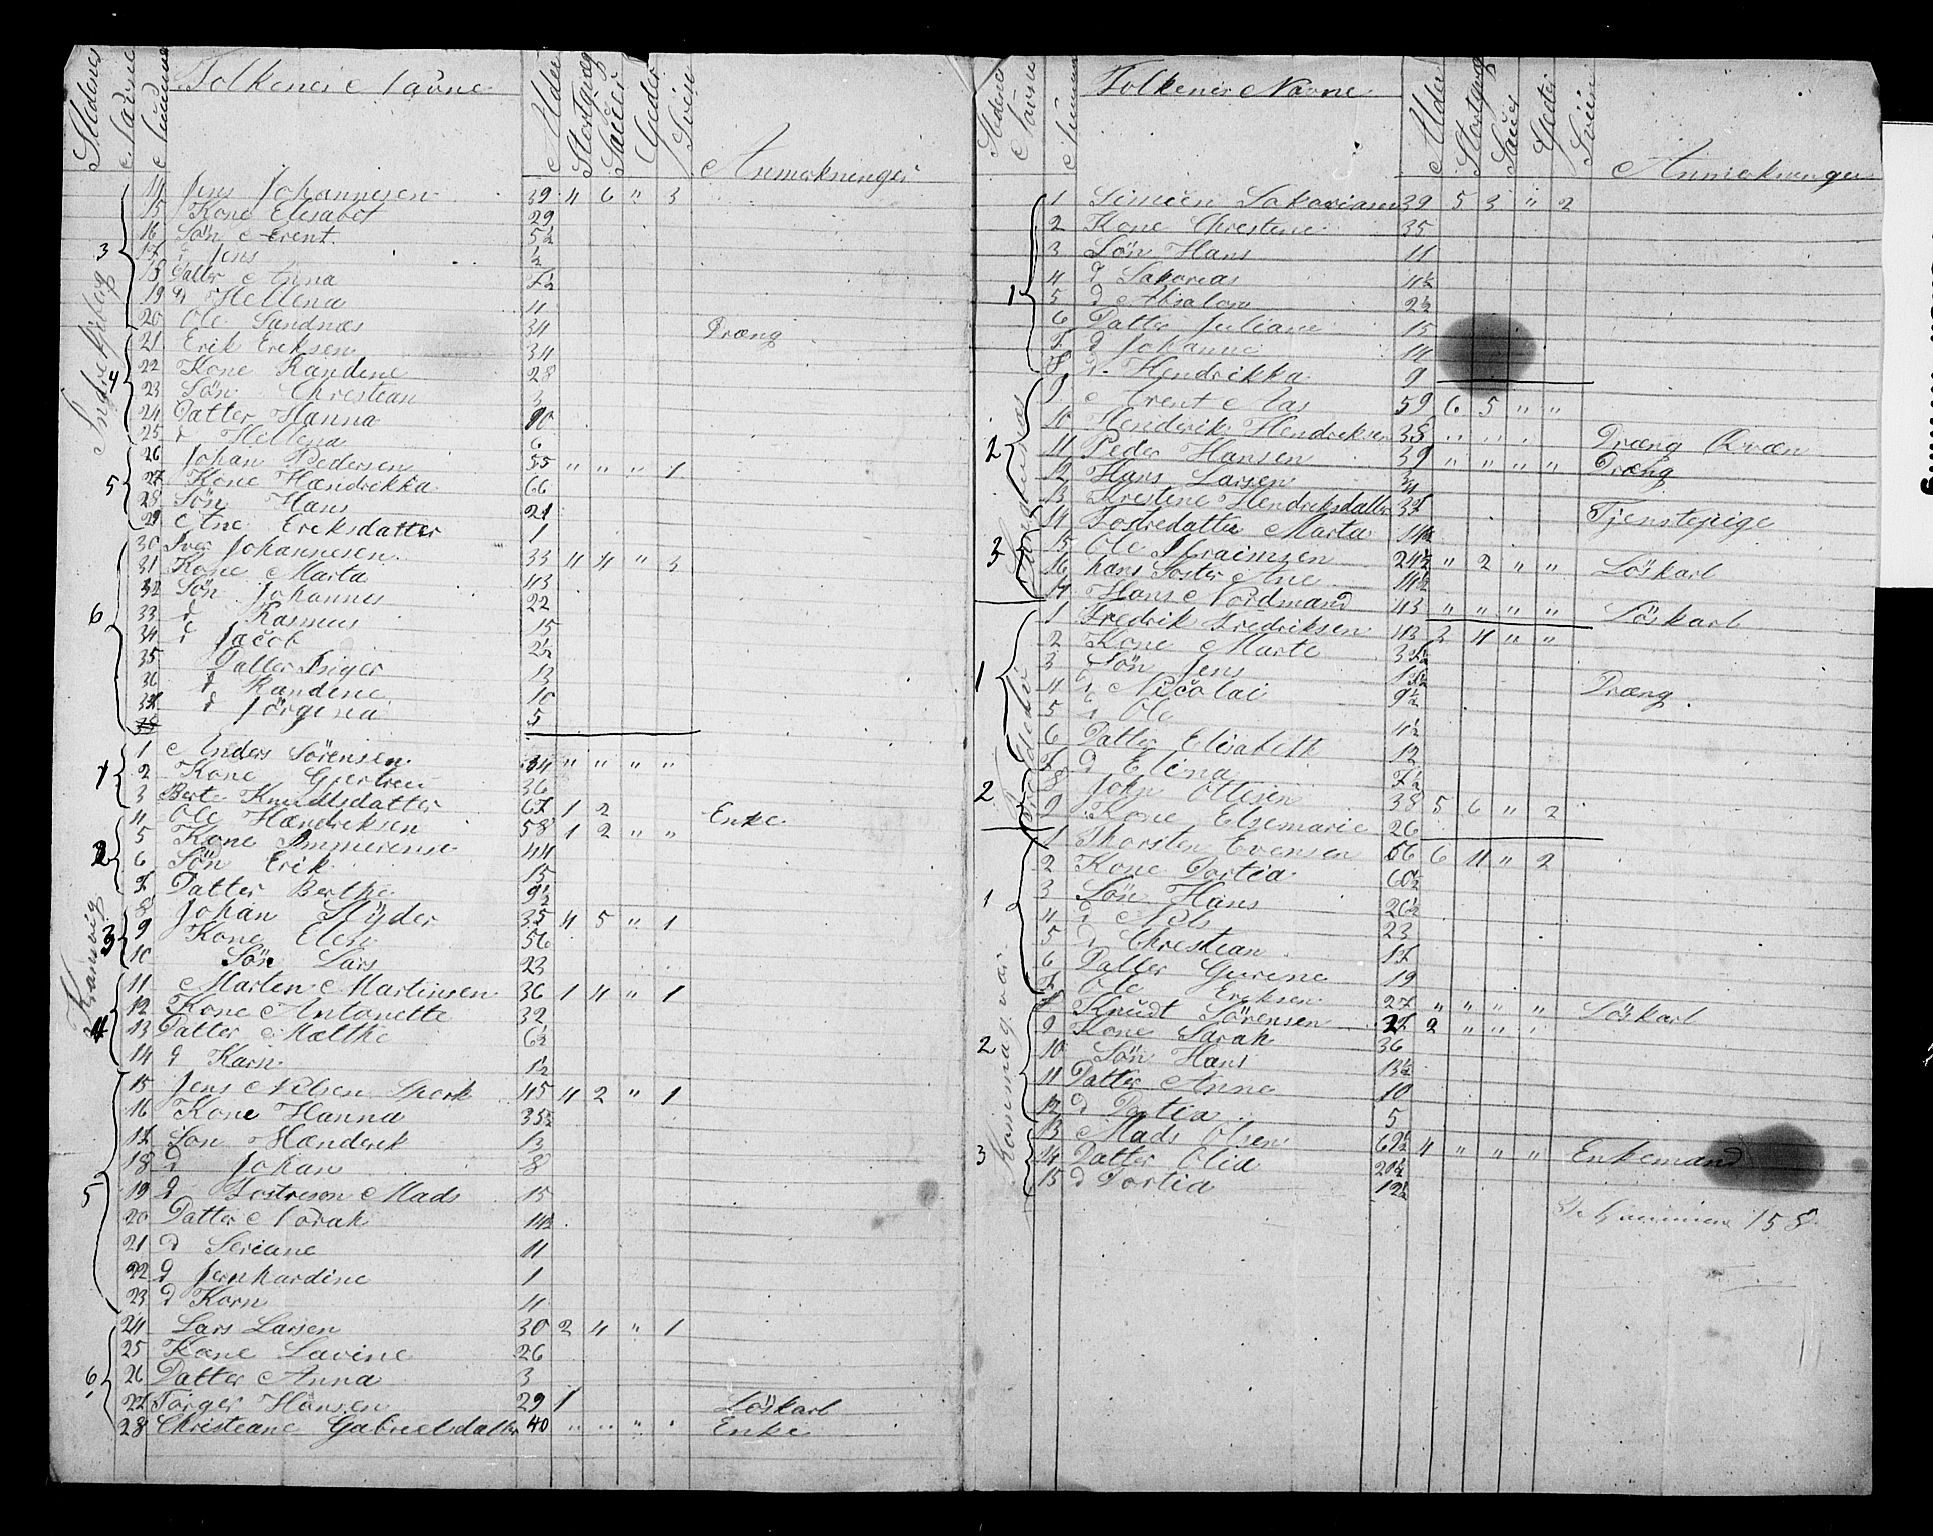 Stedenes Navne Numme Folkenes Navne Alder Stortqvæg Sauer Geder Svin Anmerkninger
14 Jens Johannesen 39 4 6 " 3
15 Kone Elisabet 29
16 Sön Arent 5½
17 d Jens ½
18 Datter Anna 7½
19 d Hellena 4
20 Ole Sandnæs 34 Dræng
21 Erik Eriksen 34
22 Kone Randene 28
23 Sön Chrestian 3
24 Datter Hanna 10
25 d Hellena 6
26 Johan Pedersen 55 " " " 1
27 Kone Hændrekka 66
28 Sön Hans 21
29 Ane Ereksdatter 1
30 Iver Johannesen 33 4 4 " 3
31 Kone Marta 43
32 Sön Johannes 22
33 d Rasmus 15
34 d Jacob 2½
35 Datter Inger 13
36 d Randene 10
37 d Jörgina 5
38
3
4
5
6
1 Anders Sörensen 34 " " " "
2 Kone Gjertrud 36
3 Berte Knudtsdatter 67 1 2 Enke
4 Ole Hændreksen 58 1 2 " "
5 Kone Immerense 44
6 Sön Erik 15
7 Datter Berthe 9½
8 Johan Slÿder 35 4 5 " 1
9 Kone Elen 56
10 Sön Lars 23
11 Marten Martinsen 36 1 4 " 1
12 Kone Antonette 32
13 Datter Malthe 6½
14 d Karn 1½
15 Jens Nilsen Sperk 45 4 2 " 1
16 Kone Hanna 35½
17 Sön Hænderik 13
18 d Johan 8
19 d Fostreson Mads 15
20 Datter Norah 14½
21 d Seriane 11
22 d Jernhardine 1
23 d Korn 4
24 Lars Larsen 30 2 4 " 1
25 Kone Lavine 26
26 Datter Anna 3
27 Torger Hansen 29 1 Löskarl
28 Christeane Gabrielsdatter 40 " " " " Enke
Kransvig
1
2
3
4
5
6
Stedenes Navne Numme Folkenes Navne Alder Stortqvæg Sauer Geder Sviin Anmerkninger
1 Simeön Sakariasen 39 5 3 " 2
2 Kone Chrestene 35
3 Sön Hans 11
4 d Sakarias 4½
5 d Absalon 2½
6 Datter Juliane 15
7 d Johanne 14
8 d Hendrikka 9
9 Arent Aas 59 6 5 " "
10 Henderik Hendreksen 38 " " " Dræng Kvæn
11 Peder Hansen 39 " " " " Dræng
12 Hans Larsen 34
13 Krestene Hendreksdatter 37 Tjenstepige
14 Fostredatter Marta 14½
15 Ole Abraimsen 24½ " 2 " " Löskarl
16 hans Söster Ane 14½
17 Hans Nordmand 43 " " " " Löskarl
1
2
3
1 Fredrik Fredriksen 43 3 4 " "
2 Kone Marte 37½
3 Sön Jens 17½
4 d Nicolai 9½ Dræng
5 d Ole
6 Datter Elisabeth 4½
7 d Elina 12
8 John Ottesen 7½
9 Kone Elsemarie 38 5 6 " 2
26
1
2
1 Thorsten Evensen 56 6 11 " 2
2 Kone Dortia 60½
3 Sön Hans 26½
4 d Nils 23
5 d Chrestian 17
6 Datter Gurene 19
7 Ole Ereksen 27 " " " " Löskarl
8 Knudt Sörensen 37 2 " " "
9 Kone Sarah 36
10 Sön Hans 13½
11 Datter Anne 10
12 d Dortia 5
13 Mads Olsen 69½ 4 " " " Enkemand
14 Datter Olia 20½
15 d Dortia 12½
Kommagvær
1
2
3
158